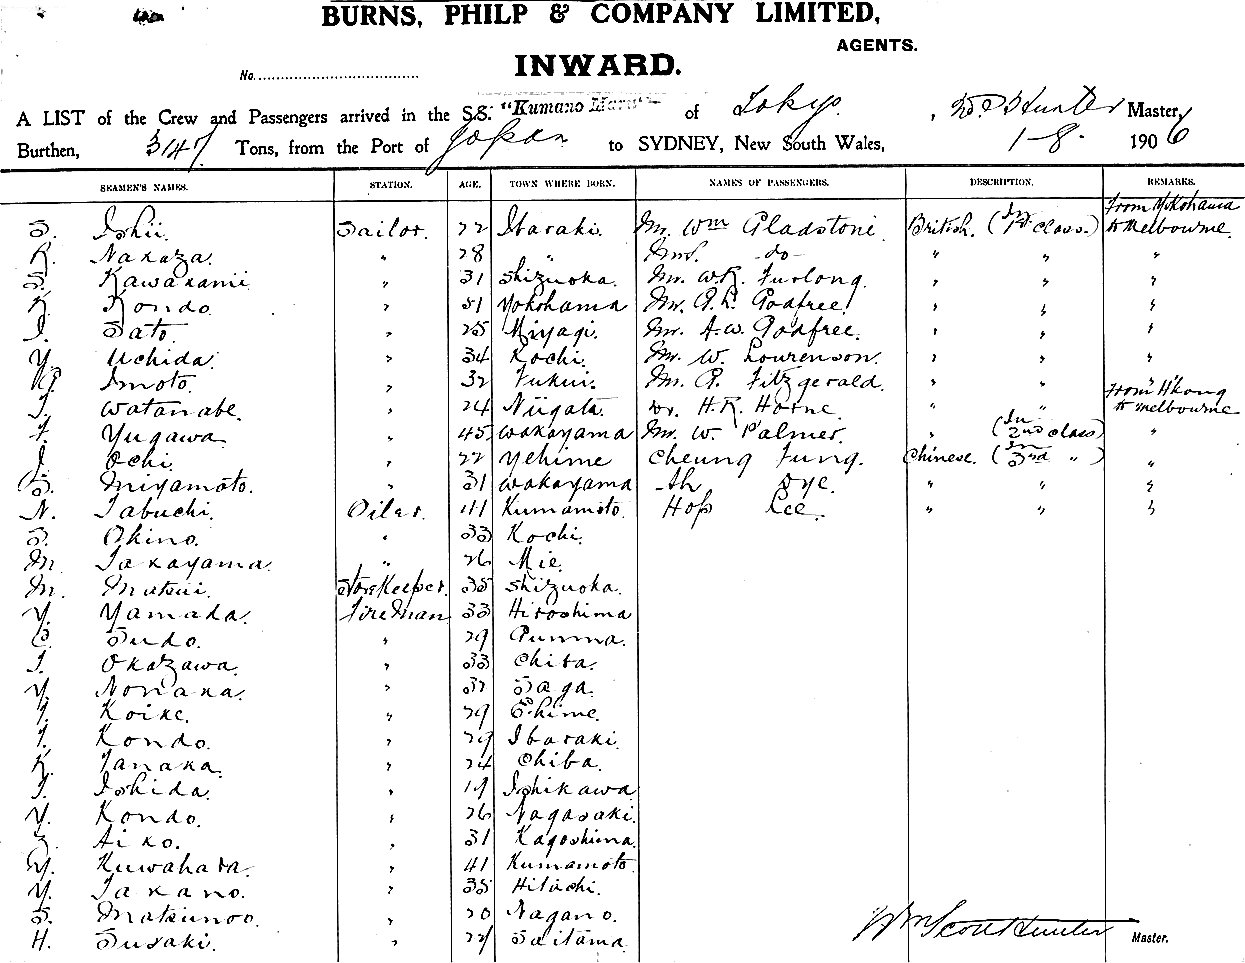 BURNS, PHILP & COMPANY LIMITED,
AGENTS.
No.
INWARD.
A LIST of the Crew and Passengers arrived in the S.S. "Kumano Maru" of Tokyo, Wm Hunter Master,
Burthen, 3147 Tons, from the Port of Japan to SYDNEY, New South Wales, 1-8- 1906
SEAMEN'S NAMES. STATION. AGE. TOWN WHERE BORN. NAMES OF PASSENGERS. DESCRIPTION. REMARKS.
S. Ishii. Sailor. 22 Ibaraki. Mr. Wm Gladstone British. (In 1st class.) From Yokohama to Melbourne.
K. Nakaza. " 28 " Mrs. -do- " " "
S. Kawakami " 31 Shizuoka. Mr. W.R. Furlong. " " "
K. Kondo. " 51 Yokohama Mr. G.L. Godfree. " " "
I. Sato. " 25 Miyagi. Mr. A.W. Godfree. " " "
Y. Uchida. " 34 Kochi. Mr. W. Lourenson. " " "
Imoto. " 32 Fukui. Mr. G. Fitzgerald. " " "
T. Watanabe. " 24 Niigata. Dr. H.K. Horne. " " From H'kong to Melbourne
Y. Yugawa " 45 Wakayama Mr. W. Palmer. " (In 2nd class) "
I. Ochi. " 22 Yehime Cheung Fung. Chinese. (In 3rd ") "
S. Miyamoto. " 31 Wakayama Ah Sye. " " "
N. Tabuchi. Oiler. 41 Kumamoto. Hop Lee. " " "
S. Okino. " 33 Kochi.
M. Takayama. " 26 Mie.
M. Matsui. Storekeeper. 35 Shizuoka.
Y. Yamada. Fireman 33 Hiroshima
C. Sudo. " 29 Gunma.
I. Okazawa. " 33 Chiba.
Y. Nonaka. " 32 Saga.
T. Koike. " 29 Ehime.
T. Kondo. " 29 Ibaraki.
K. Tanaka. " 24 Chiba.
T. Ishida. " 19 Ishikawa
Y. Kondo. " 26 Nagasaki.
Z. Aiko. " 31 Kagoshima.
Y. Kuwahara. " 41 Kumamoto.
Y. Takano. " 35 Hitachi.
S. Matsunoo. " 20 Nagano.
H. Susaki. " 24 Saitama.
Wm Scott Hunter Master.